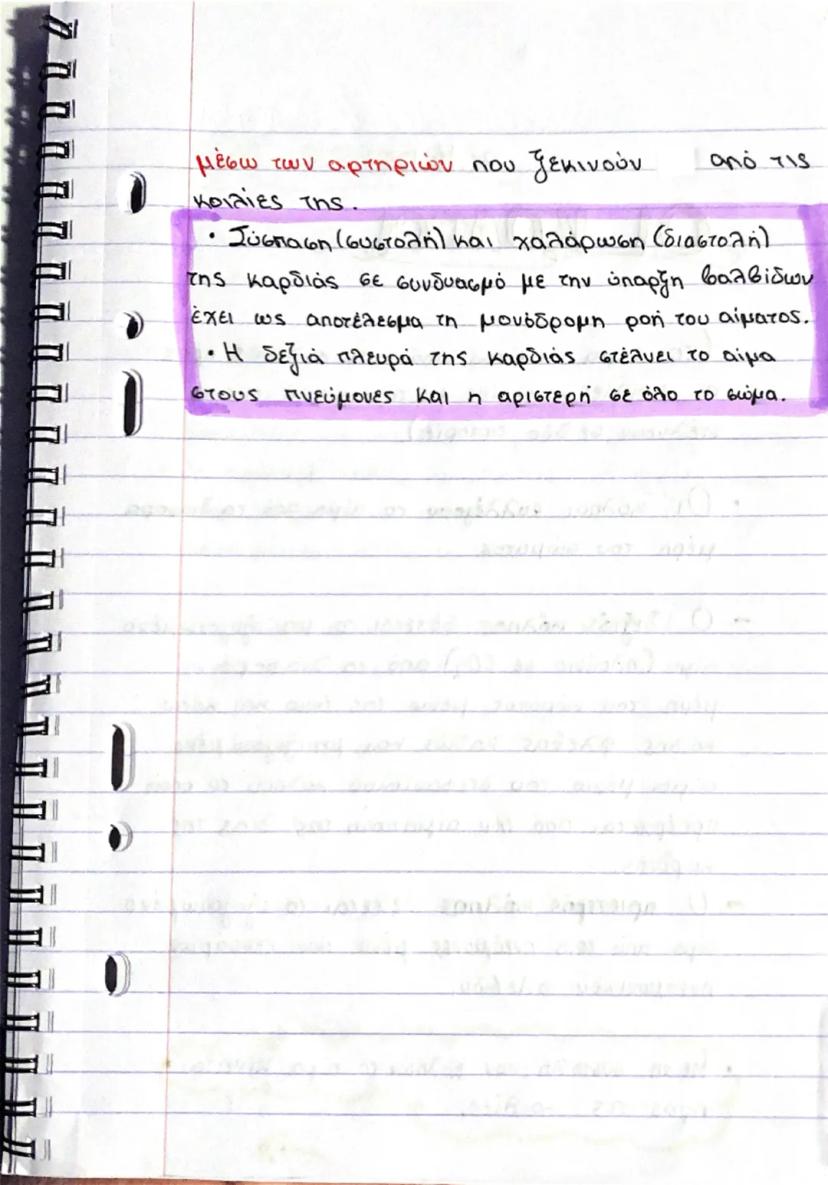 μέσω των αρτηριών που ξεκινούν από τις
κοιλίες της.
• Σύσπαση (συστολή) και χαλάρωση (διαστολή)
της καρδιάς σε συνδυασμό με την ύπαρξη βαλβίδων
έχει ως αποτέλεσμα τη μονόδρομη ροή του αίματος.
• Η δεξιά πλευρά της καρδιάς στέλνει το αίμα
στους πνεύμονες και η αριστερή σε όλο το σώμα.